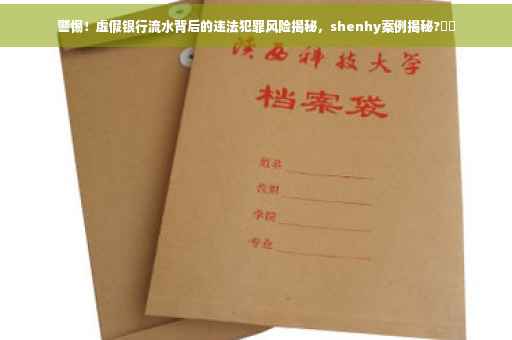 警惕！虚假银行流水背后的违法犯罪风险揭秘，shenhy案例揭秘?
陕西科技大学
档案袋
姓名
学院
专业